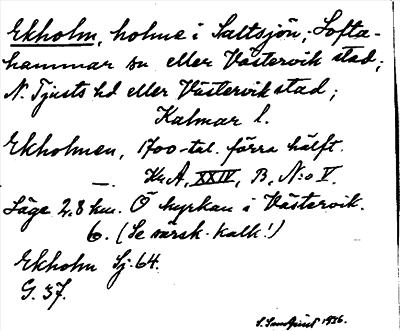 Ekholm, holme i Saltsjön; Lofta-
hammar sn eller Västervik stad;
N. Tjusts hd eller Västervik stad;
Kalmar l.
Ekholmen, 1700-tal. förra hälft.
— Kr. A, XXIV, B, N:o V.
Läge 2.8 km. Ö kyrkan i Västervik.
6. (Se särsk. kalk!)
Ekholm Sj. 64.
G. 37.
1936.